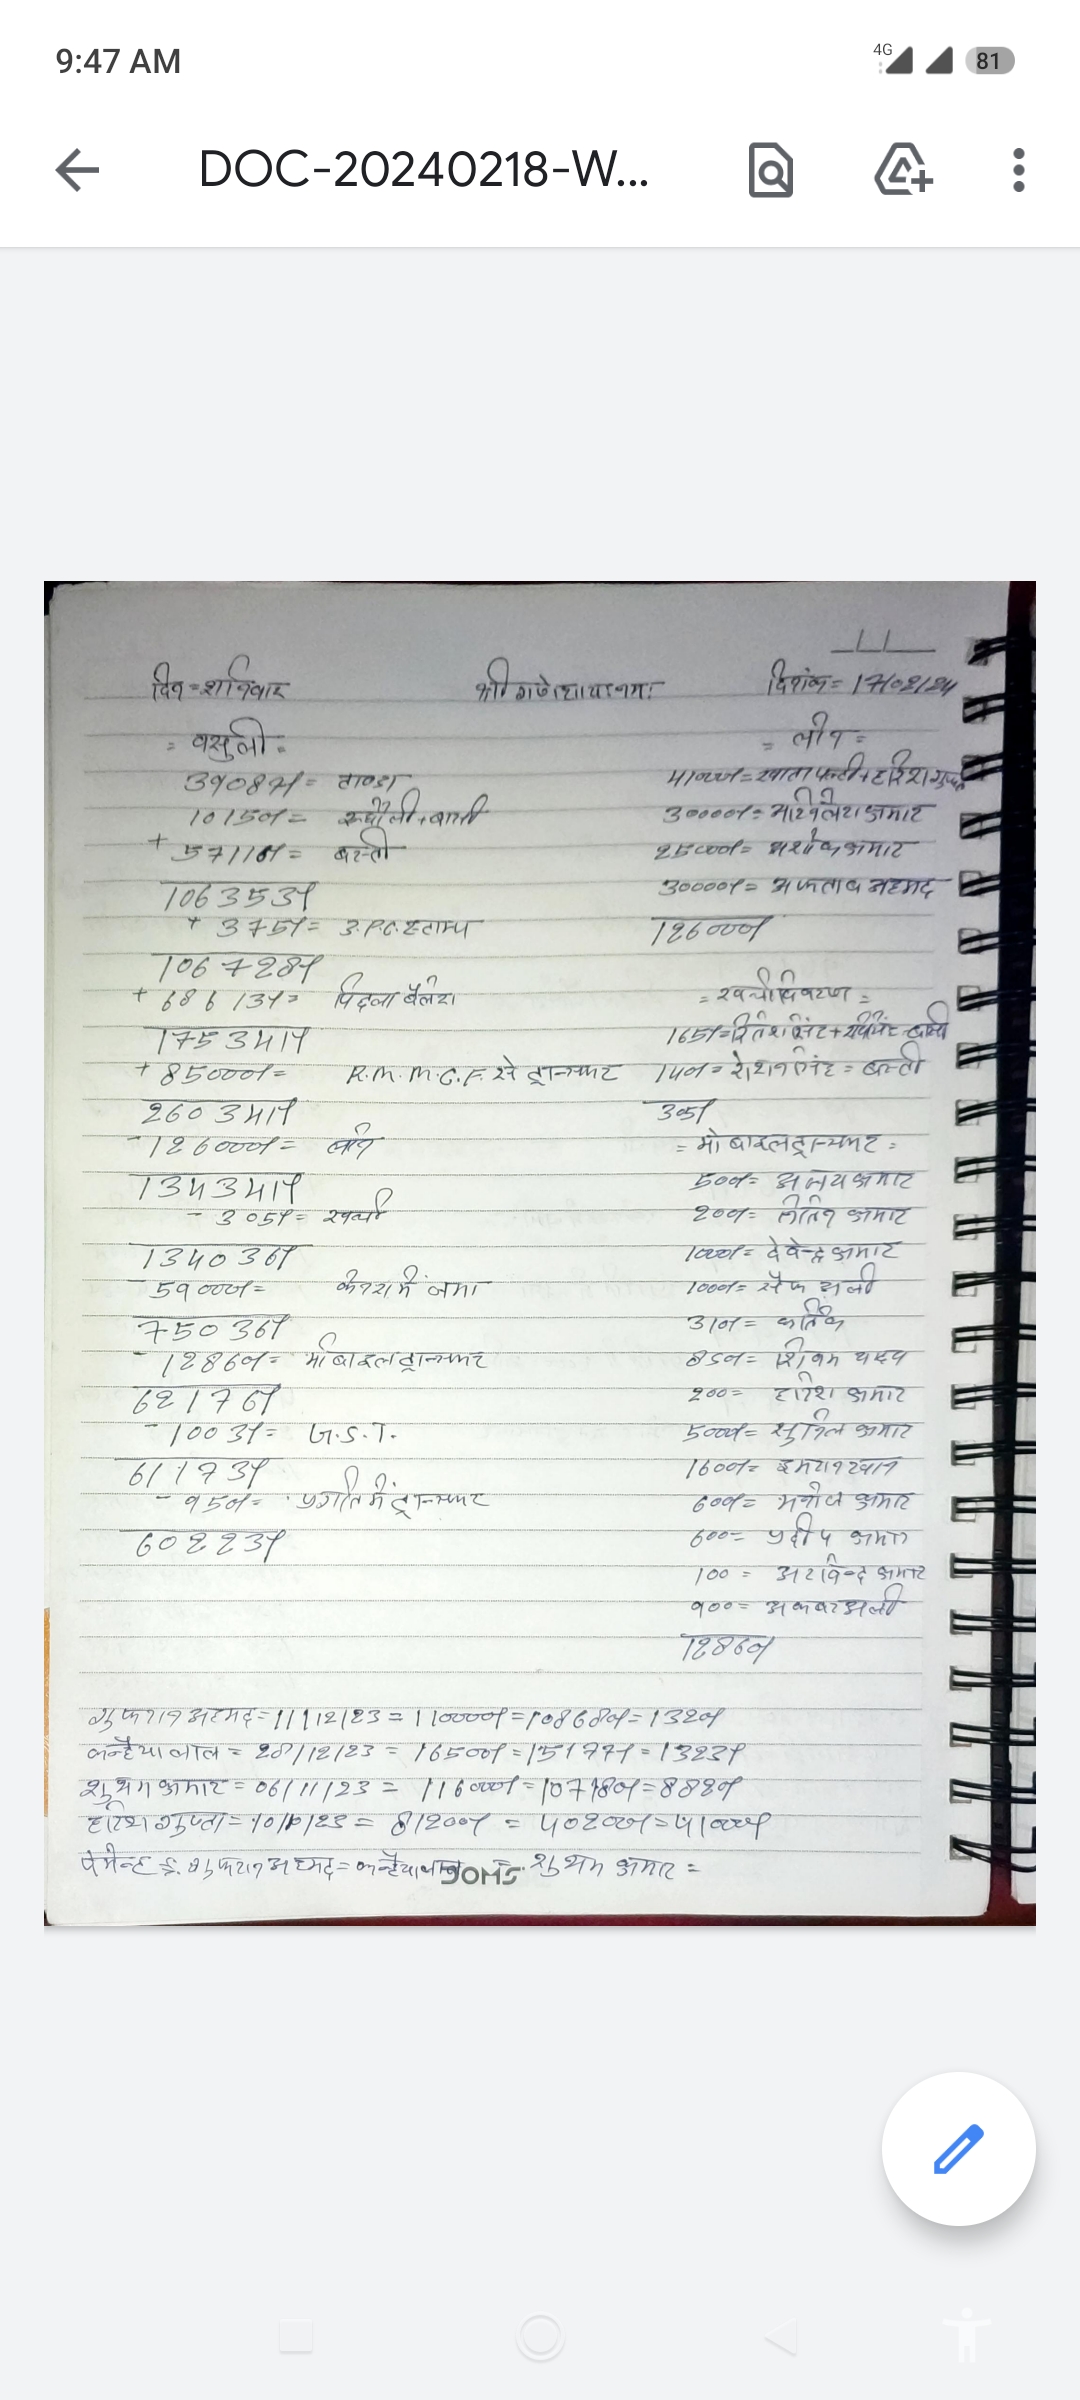 9:47 AM
4G
81
DOC-20240218-W...
दिन=शनिवार श्री गणेशाय नमः दिनांक=17/02/24
=वसुली=
39087/= टाण्डा
10150/= रुधौली+बासी
+57116/= बस्ती
106353/
+375/= उ.P.C. स्टाम्प
106728/
+68613/= पिछला बैलेंश
175341/
+85000/= R.M.M.C.F. से ट्रान्सफर
260341/
-126000/= लोन
134341/
-305/= खर्चा
134036/
59000/= कैश में जमा
75036/
-12860/= मोबाइल ट्रान्सफर
62176/
-1003/= G.S.T.
61173/
-950/= प्रगति में ट्रान्सफर
60223/
=लोन=
41000/=खाता पल्टी+हरिश गुप्ता
30000/= कुमार
25000/= अशोक कुमार
30000/= अफताब अहमद
126000/
=खर्चा विवरण=
165/=रितेश सिंह+ सिंह
140/= रोशन सिंह= बस्ती
305/
=मोबाइल ट्रान्सफर=
500/= अजय कुमार
200/= नितिन कुमार
1000/= देवेन्द्र कुमार
1000/= सैफ अली
310/= कार्तिक
850/= शिवम यादव
200= हरिश कुमार
5000/= सुनिल कुमार
1600/= इमरान खान
600/= मनोज कुमार
600= प्रदीप कुमार
100= अरविन्द कुमार
900= अकबर अली
12860/
गुफरान अहमद=11/12/23=110000/=108680/=1320/
कन्हैया लाल=28/12/23=16500/=15177/=1323/
शुभम कुमार=06/11/23=116000/=107180/=8820/
हरिश गुप्ता=10/10/23=81200/=40200/=41000/
पेमेन्ट इ. गुफरान अहमद=कन्हैया लाल= शुभम कुमार=
DOMS